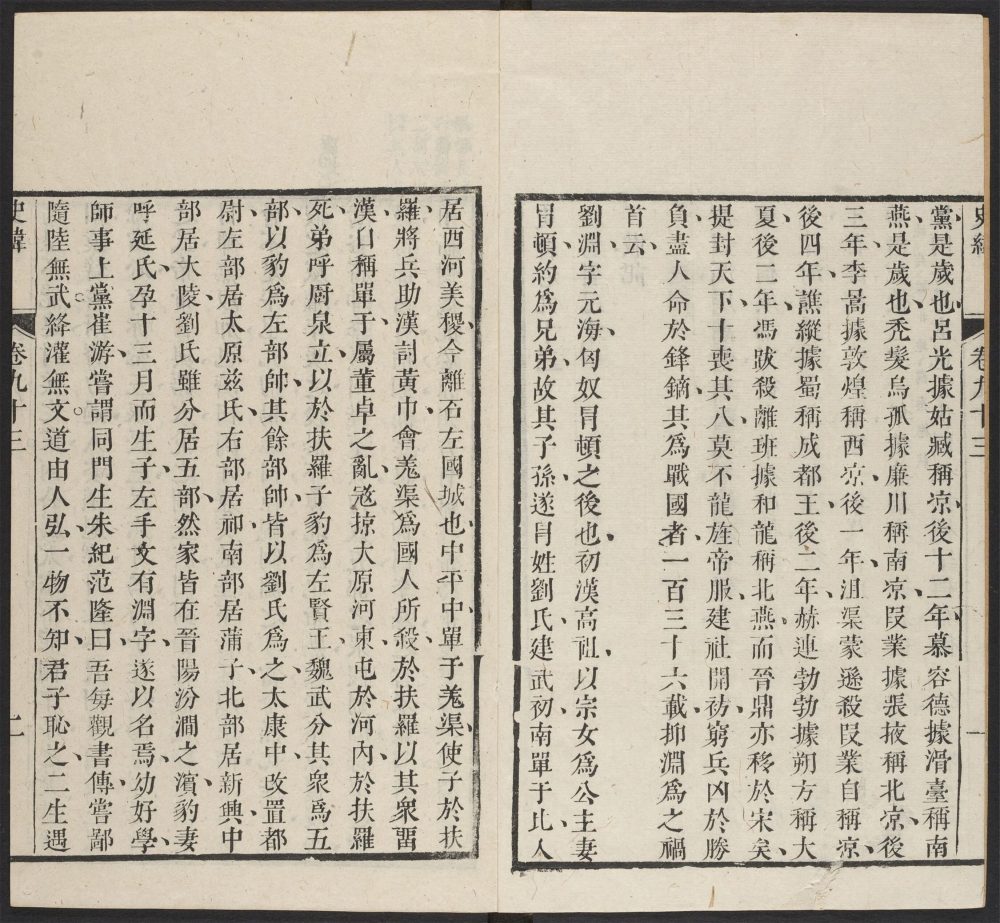 史緯 卷九十三 一
黨是歲也呂光據姑臧稱凉後十二年慕容德據滑臺稱南
燕是歲也禿髮烏孤據廉川稱南凉段業據張掖稱北凉後
三年李暠據敦煌稱西凉後一年沮渠蒙遜殺段業自稱凉
後四年譙縱據蜀稱成都王後二年赫連勃勃據朔方稱大
夏後二年馮跋殺離班據和龍稱北燕而晉鼎亦移於宋矣
提封天下十喪其八莫不龍旌帝服建社開祊窮兵凶於勝
負盡人命於鋒鏑其爲戰國者一百三十六載抑淵爲之禍
首云
劉淵字元海匈奴冒頓之後也初漢高祖以宗女爲公主妻
冒頓約爲兄弟故其子孫遂冒姓劉氏建武初南單于比人
居西河美稷今離石左國城也中平中單于羌渠使子於扶
羅將兵助漢討黃巾會羌渠爲國人所殺於扶羅以其衆留
漢自稱單于屬董卓之亂寇掠太原河東屯於河內於扶羅
死弟呼厨泉立以於扶羅子豹爲左賢王魏武分其衆爲五
部以豹爲左部帥其餘部帥皆以劉氏爲之太康中改置都
尉左部居太原兹氏右部居祁南部居蒲子北部居新興中
部居大陵劉氏雖分居五部然家皆在晉陽汾澗之濱豹妻
呼延氏孕十三月而生子左手文有淵字遂以名焉幼好學
師事上黨崔游嘗謂同門生朱紀范隆曰吾每觀書傳嘗鄙
隨陸無武絳灌無文道由人弘一物不知君子恥之二生遇
史緯 卷九十三 二